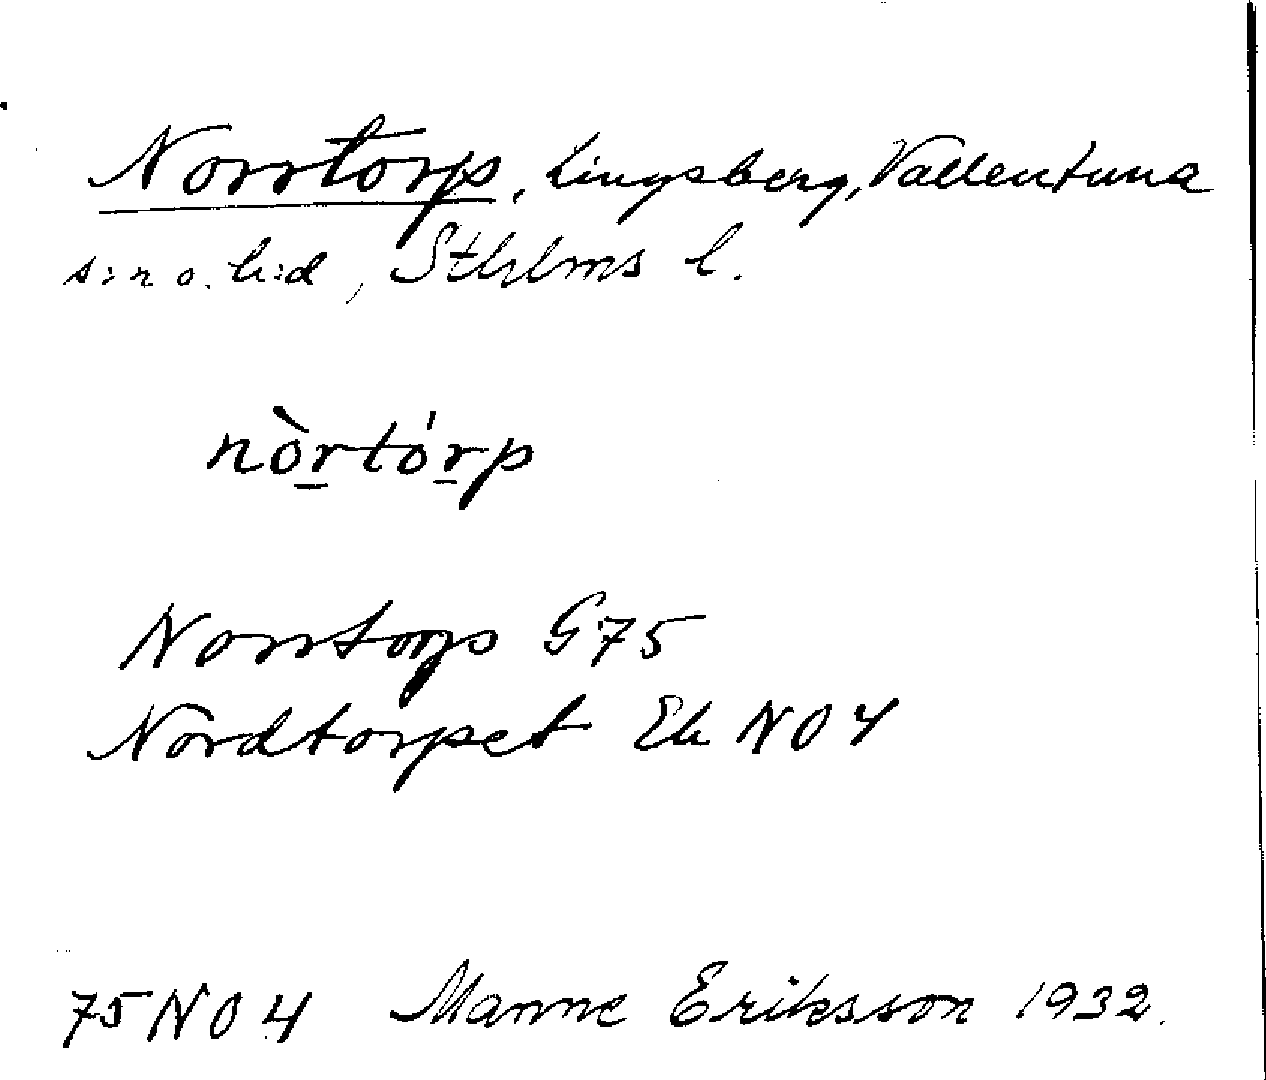 Norrtorp, Lingsberg, Vallentuna
s:n o. h:d, Sthlms l.
nòrtórp
Norrtorp G75
Nordtorpet Ek NO4
75NO4 Manne Eriksson 1932.